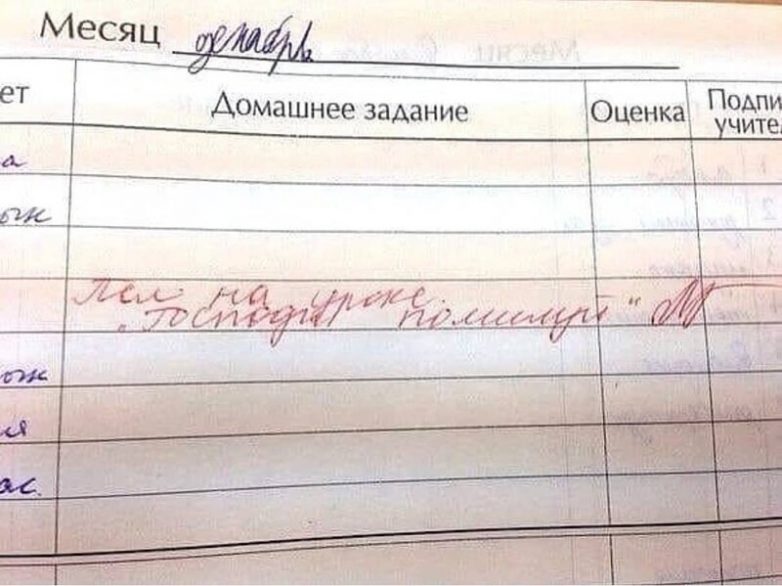 Месяц декабрь
ет Домашнее задание Оценка Подпи
учите
а
Пел на уроке
„Господи помилуй"
ож
ия
ас.